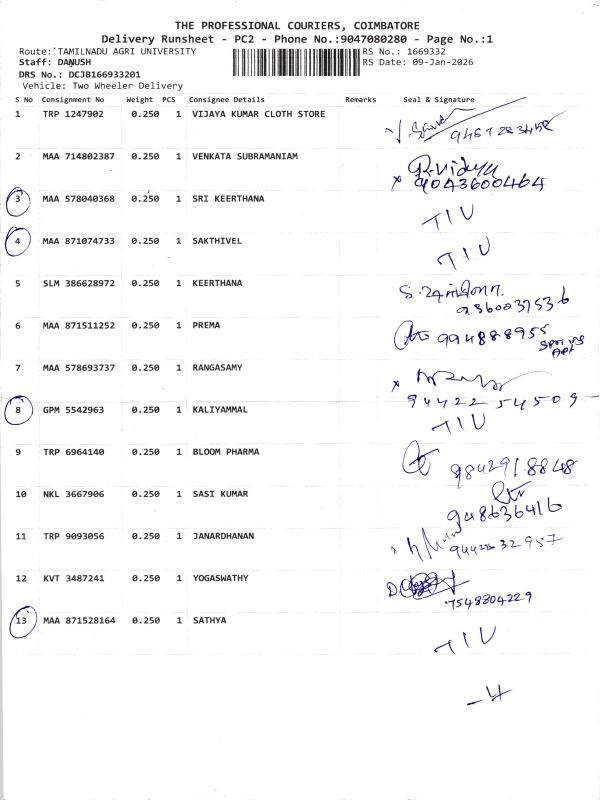 THE PROFESSIONAL COURIERS, COIMBATORE
Delivery Runsheet - PC2 - Phone No.:9047080280 - Page No.:1
Route: TAMILNADU AGRI UNIVERSITY RS No.: 1669332
Staff: DANUSH RS Date: 09-Jan-2026
DRS No.: DCJB166933201
Vehicle: Two Wheeler Delivery
S No Consignment No Weight PCS Consignee Details Remarks Seal & Signature
1 TRP 1247902 0.250 1 VIJAYA KUMAR CLOTH STORE
2 MAA 714802387 0.250 1 VENKATA SUBRAMANIAM R.Vidya
x 9043600464
3 MAA 578040368 0.250 1 SRI KEERTHANA TIU
4 MAA 871074733 0.250 1 SAKTHIVEL TIU
5 SLM 386628972 0.250 1 KEERTHANA
9360037536
6 MAA 871511252 0.250 1 PREMA 994888955
7 MAA 578693737 0.250 1 RANGASAMY x
94422 54509
8 GPM 5542963 0.250 1 KALIYAMMAL TIU
9 TRP 6964140 0.250 1 BLOOM PHARMA
9842918848
10 NKL 3667906 0.250 1 SASI KUMAR
948636416
11 TRP 9093056 0.250 1 JANARDHANAN
9442232957
12 KVT 3487241 0.250 1 YOGASWATHY
7548804229
13 MAA 871528164 0.250 1 SATHYA TIU
-4